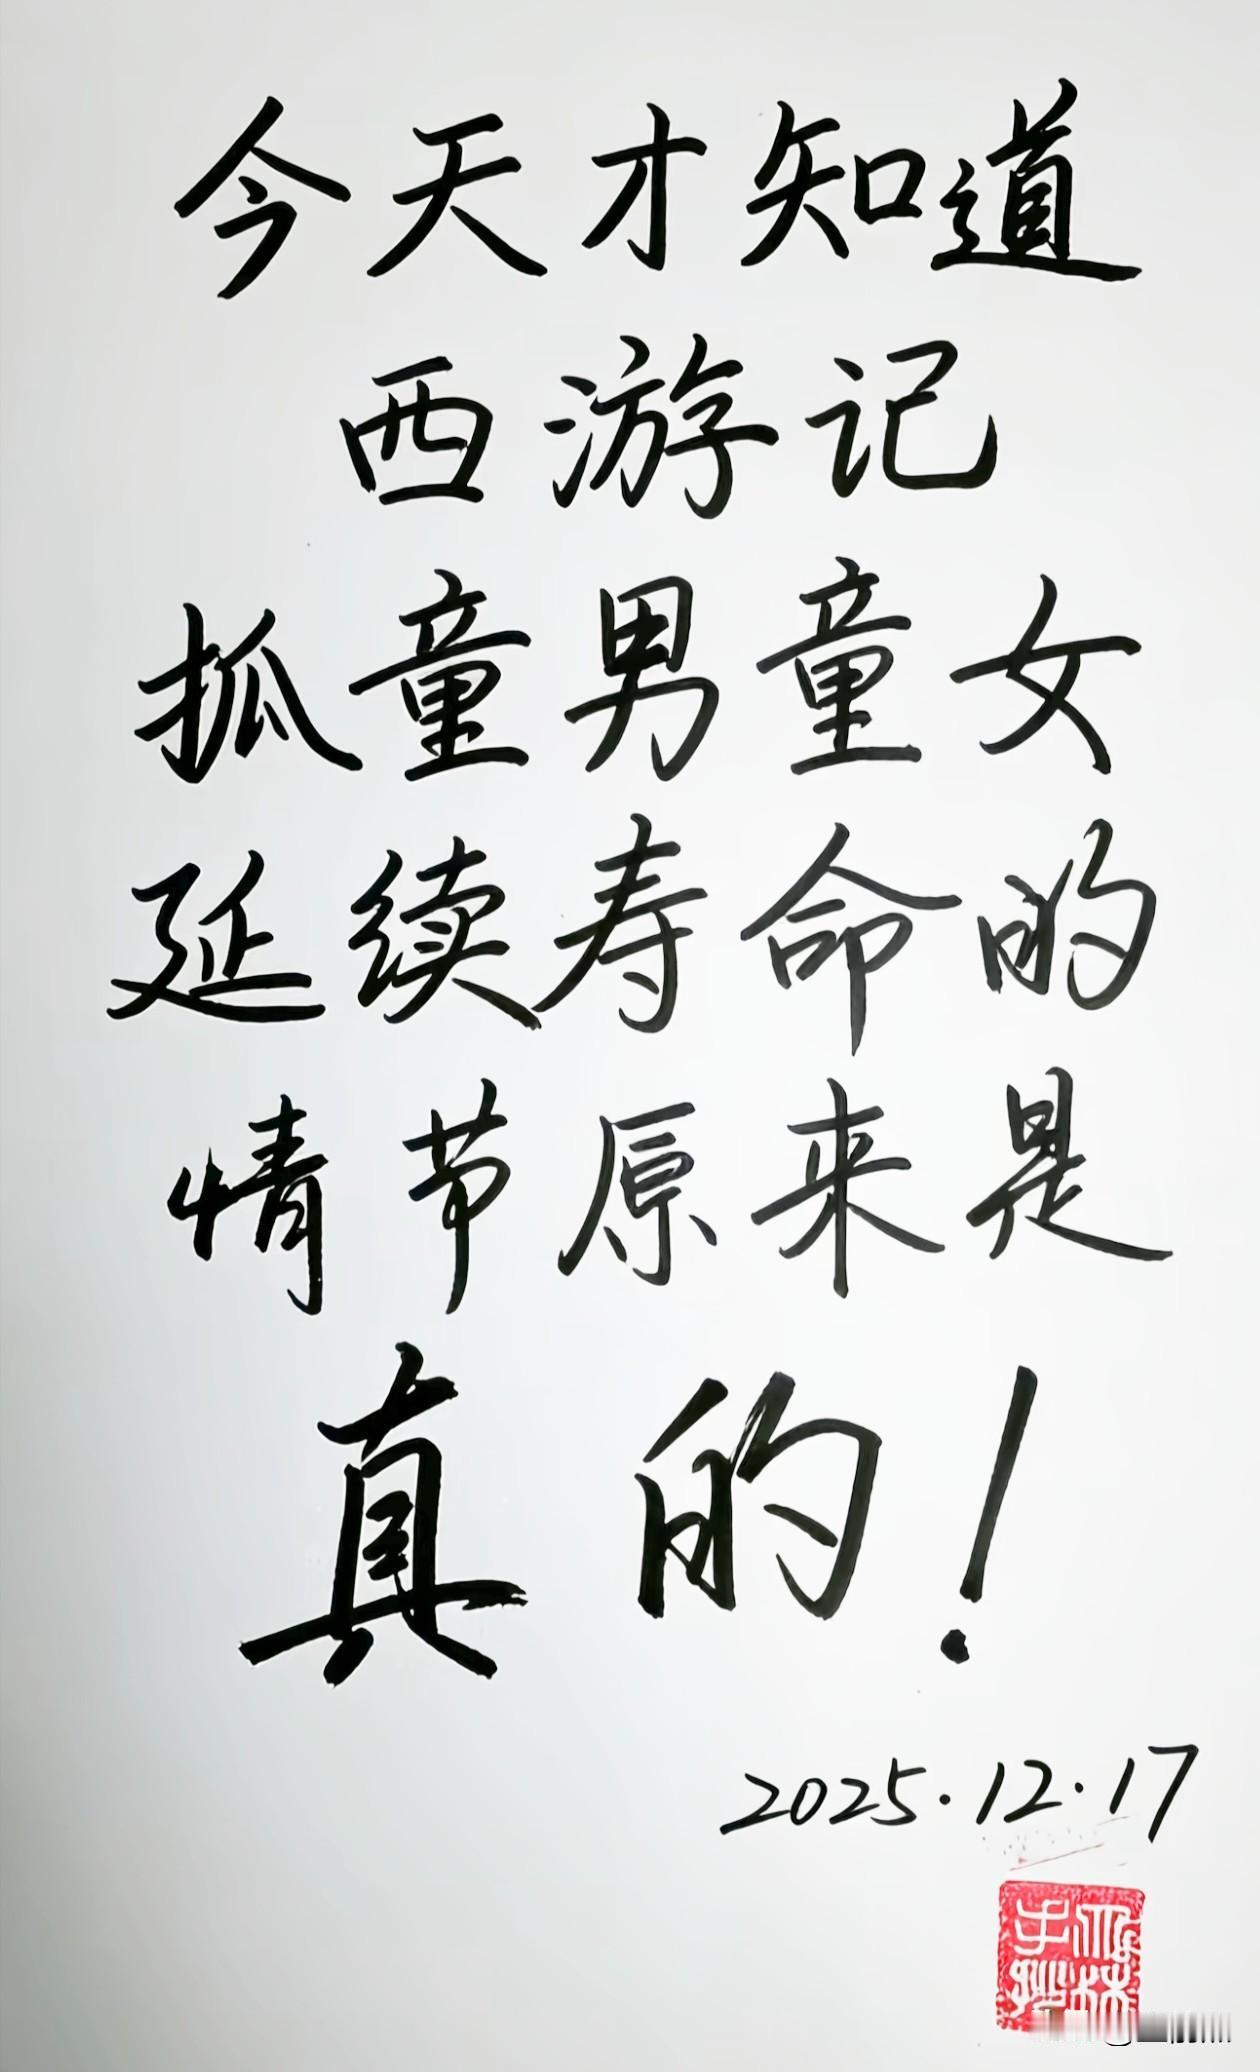 今天才知道
西游记
抓童男童女
延续寿命的
情节原来是
真的！
2025.12.17